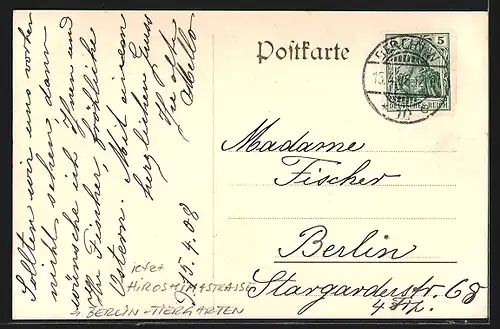 Sollten wir uns vorher
nicht sehen, dann
wünsche ich Ihnen und
Hr Fischer, fröhliche
Ostern. Mit einem
herzlichen Gruss
15.4.08
jetzt
HIROSHIMASTRASSE
BERLIN-TIERGARTEN
Postkarte
BERLIN W
5
DEUTSCHES REICH
Madame
Fischer
Berlin
Stargarderstr. 68